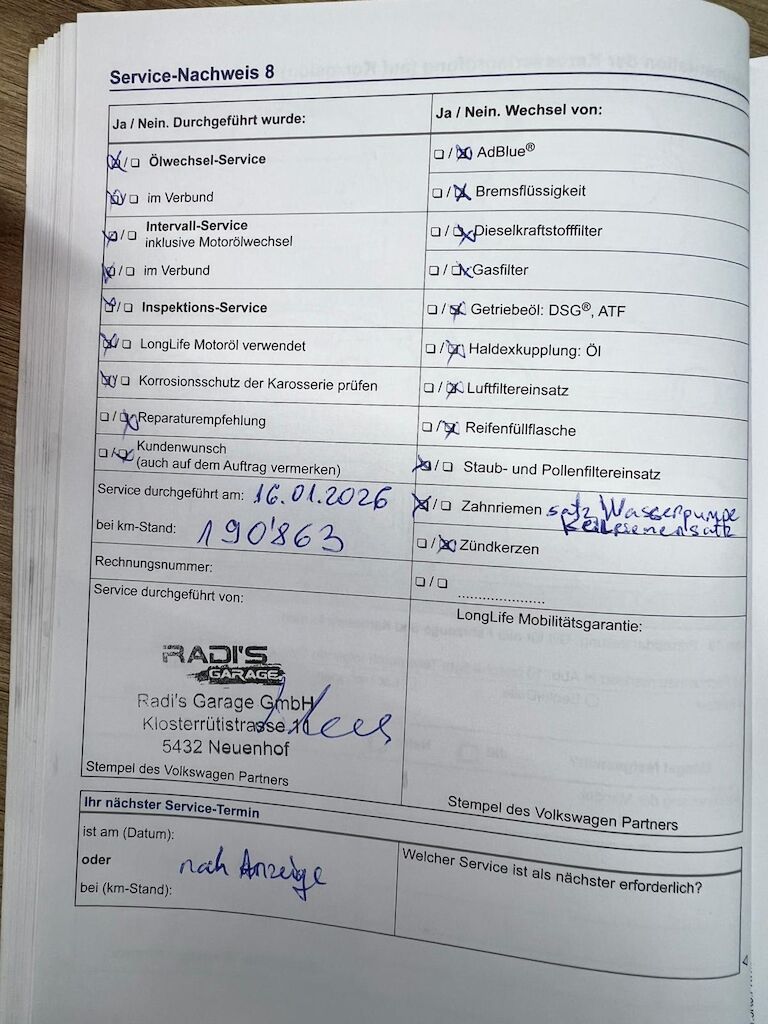 Service-Nachweis 8
Ja / Nein. Durchgeführt wurde:
☒/☐ Ölwechsel-Service
☒/☐ im Verbund
☒/☐ Intervall-Service
inklusive Motorölwechsel
☒/☐ im Verbund
☒/☐ Inspektions-Service
☒/☐ LongLife Motoröl verwendet
☒/☐ Korrosionsschutz der Karosserie prüfen
☐/☒ Reparaturempfehlung
☐/☒ Kundenwunsch
(auch auf dem Auftrag vermerken)
Service durchgeführt am: 16.01.2026
bei km-Stand: 190'863
Rechnungsnummer:
Service durchgeführt von:
RADI'S
GARAGE
Radi's Garage GmbH
Klosterrütistrasse 11
5432 Neuenhof
Stempel des Volkswagen Partners
Ja / Nein. Wechsel von:
☐/☒ AdBlue®
☐/☒ Bremsflüssigkeit
☐/☒ Dieselkraftstofffilter
☐/☒ Gasfilter
☐/☒ Getriebeöl: DSG®, ATF
☐/☒ Haldexkupplung: Öl
☐/☒ Luftfiltereinsatz
☐/☒ Reifenfüllflasche
☒/☐ Staub- und Pollenfiltereinsatz
☒/☐ Zahnriemen satz Wasserpumpe
☐/☒ Zündkerzen
☐/☐ ......................
LongLife Mobilitätsgarantie:
Stempel des Volkswagen Partners
Ihr nächster Service-Termin
ist am (Datum):
oder
nach Anzeige
bei (km-Stand):
Welcher Service ist als nächster erforderlich?